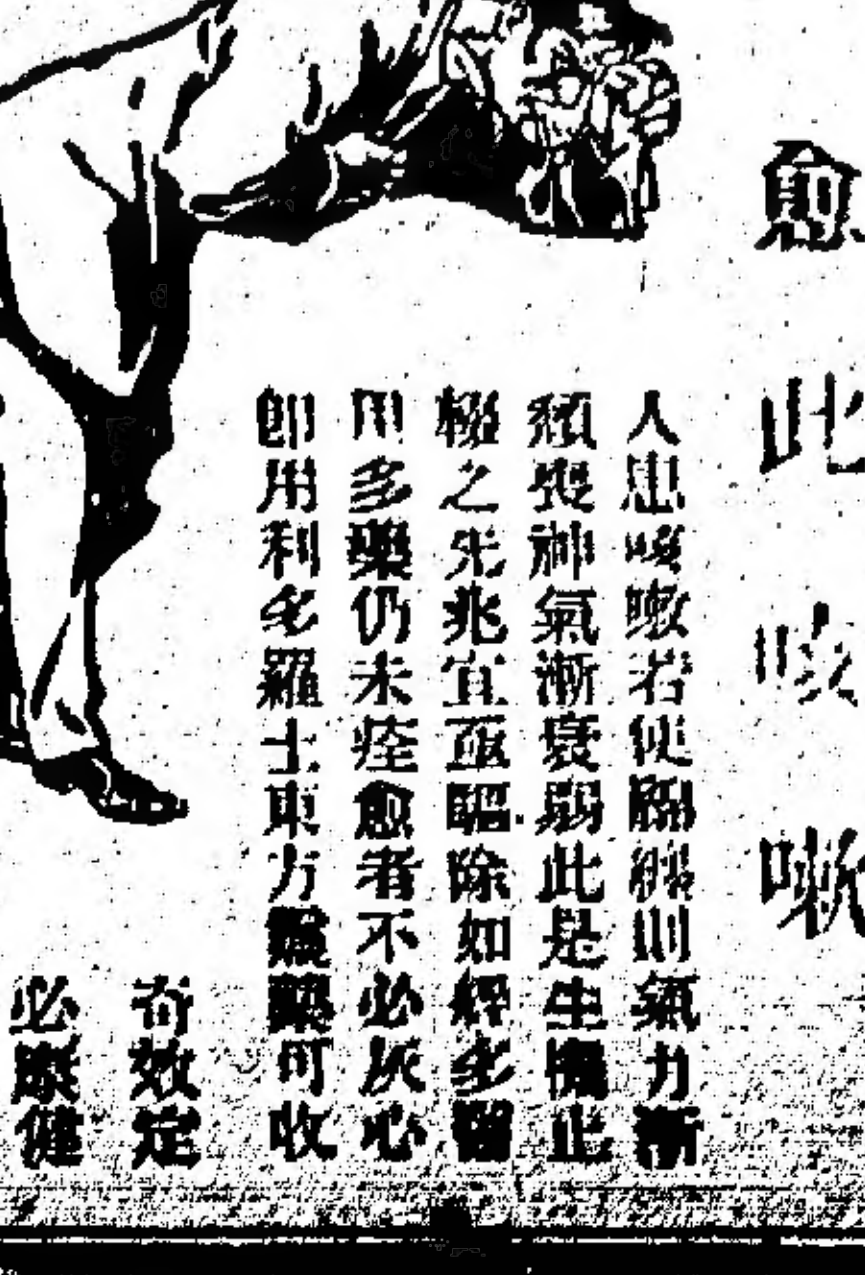 愈此咳嗽
人患咳嗽若使關繼則氣力漸
頹喪神氣漸衰弱此是生機止
極之先兆宜亟驅除如經多醫
用多藥仍未痊愈者不必灰心
即用利多羅士東方靈藥可收
奇效定
必康健